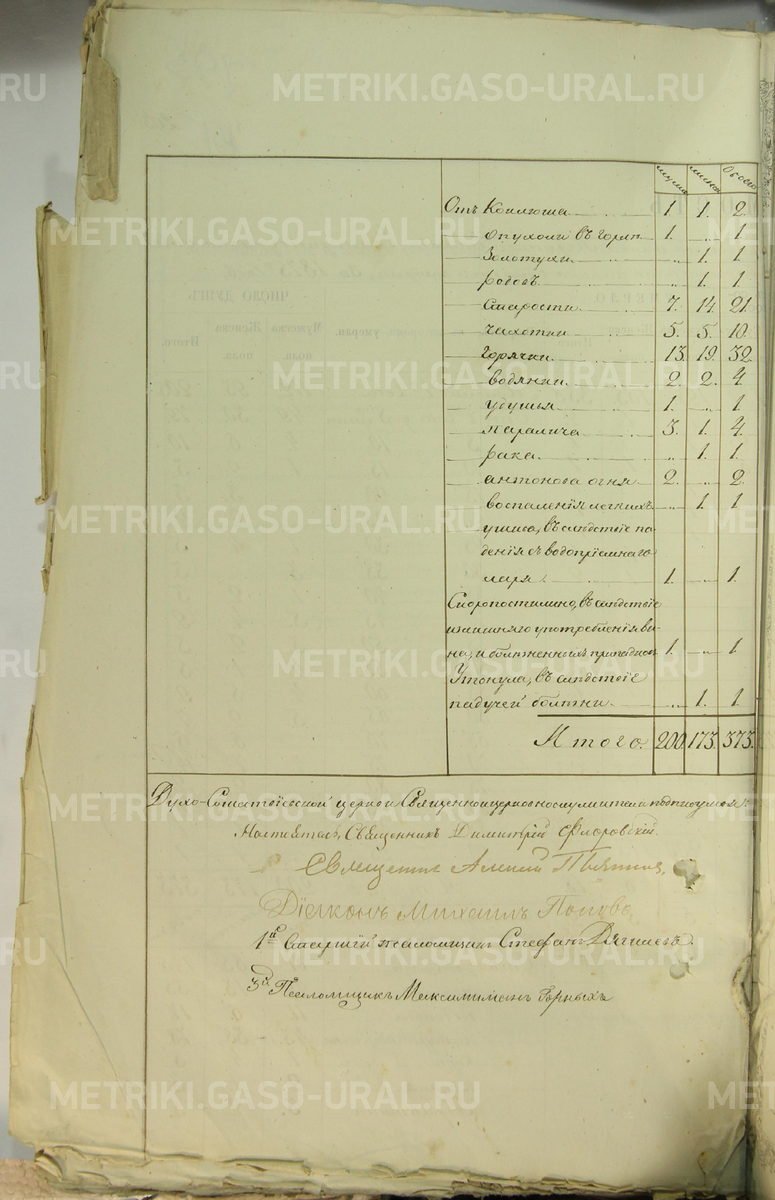 мужс. женс. обоего
Отъ Коклюша 1. 1. 2
опухоли въ горлѣ 1. „ 1
Золотухи „ 1. 1
родовъ „ 1. 1
Старости 7. 14. 21.
чахотки 5. 5. 10.
горячки 13. 19. 32.
водянки 2. 2. 4
удушья 1. „ 1
паралича 3. 1. 4.
рака „ 1. 1.
антонова огня 2. „ 2.
воспаленія легкихъ „ 1. 1
ушиба, въ слѣдствіе па-
денія съ водопріемнаго
ларя 1. „ 1.
Скоропостижно, въ слѣдствіе
излишняго употребленія ви-
на, и болѣзненныхъ припадковъ 1. „ 1
Утонула, въ слѣдствіе
падучей болѣзни „ 1. 1.
Итого. 200. 173. 373.
Духо-Сошествіевской церкви Священноцерковнослужители подписуемся:
Настоятель, Священникъ Димитрій Флоровскій.
Священникъ Алексій
Діаконъ Михаилъ Поповъ.
1й Старшій псаломщикъ Стефанъ Дягилевъ.
3й Псаломщикъ Максимиліанъ Горныхъ
METRIKI.GASO-URAL.RU